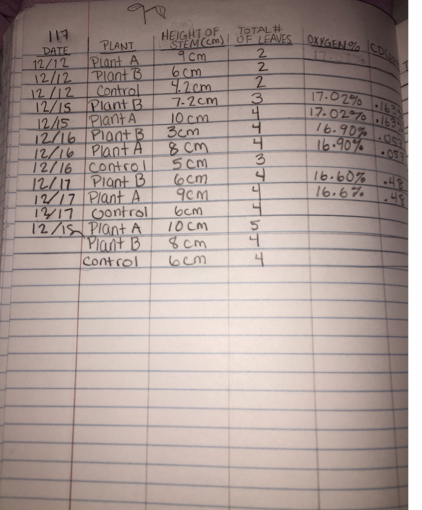 117
DATE PLANT HEIGHT OF STEM(cm) TOTAL # OF LEAVES OXYGEN%
12/12 Plant A 9cm 2
12/12 Plant B 6cm 2
12/12 Control 4.2cm 2
12/15 Plant B 7.2cm 3 17.02%
12/15 Plant A 10cm 4 17.02%
12/16 Plant B 3cm 4 16.90%
12/16 Plant A 8cm 4 16.90%
12/16 Control 5cm 3
12/17 Plant B 6cm 4 16.60%
12/17 Plant A 9cm 4 16.6%
12/17 Control 6cm 4
Plant A 10cm 5
Plant B 8cm 4
Control 6cm 4